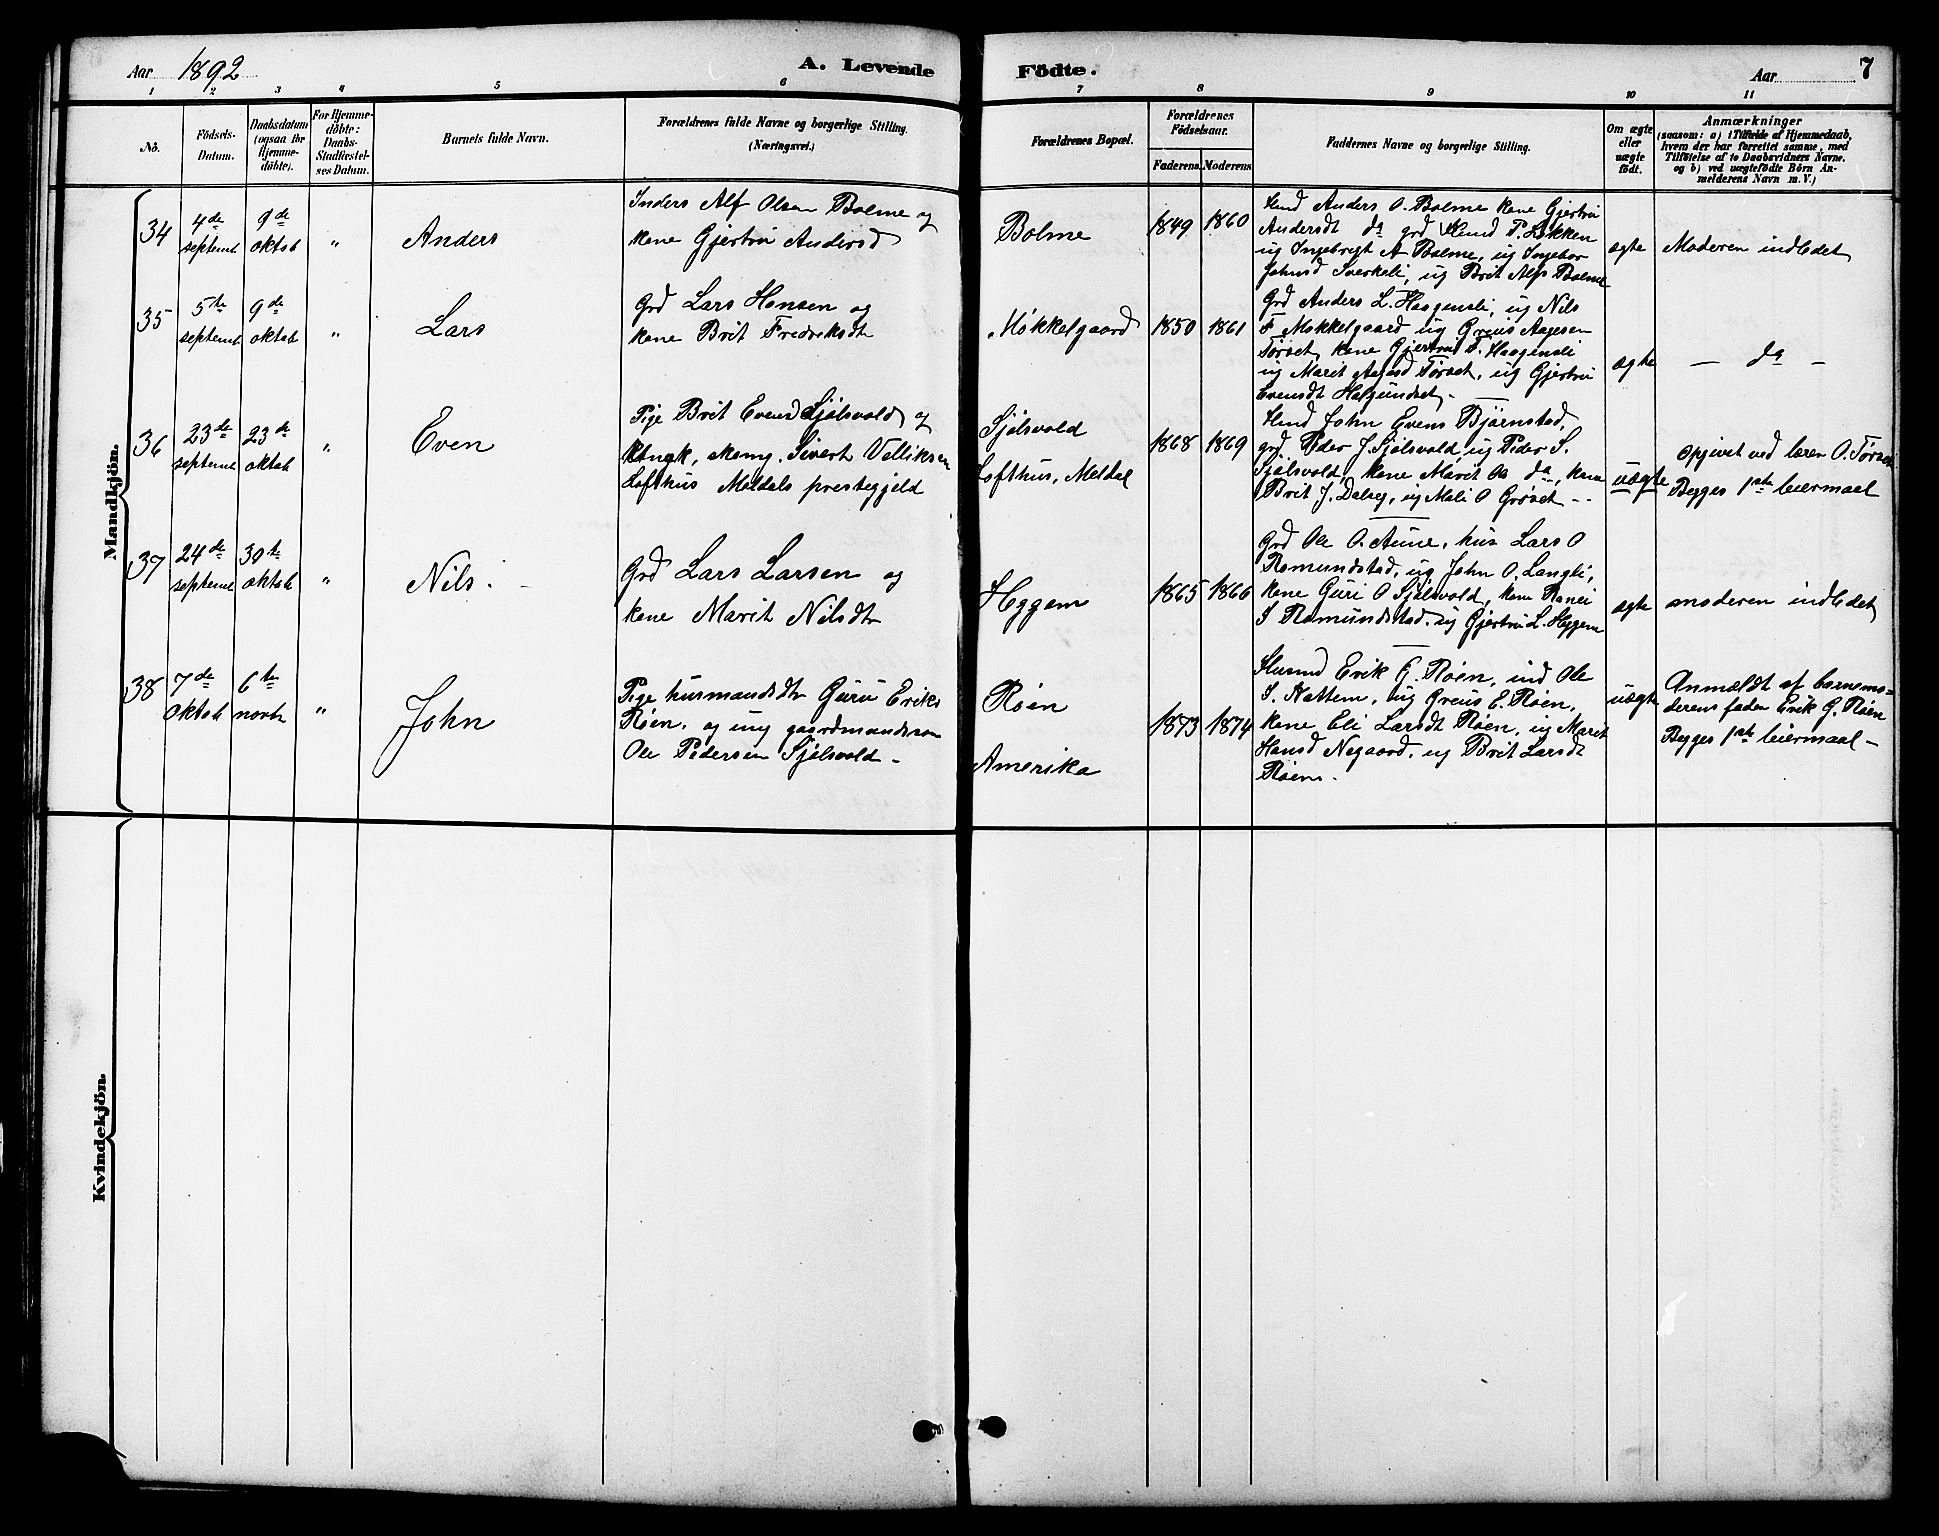 Aar 1892
A. Levende
Födte.
Aar
7
1 2 3 4 5 6 7 8 9 10 11
No.
Födsels-
Datum.
Daabsdatum
(ogsaa for
Hjemme-
döbte).
For Hjemme-
döbte:
Daabs-
Stadfæstel-
ses Datum.
Barnets fulde Navn.
Forældrenes fulde Navne og borgerlige Stilling.
(Næringsvei.)
Forældrenes Bopæl.
Forældrenes
Födselsaar.
Faderens. Moderens
Faddernes Navne og borgerlige Stilling.
Om ægte
eller
uægte
födt.
Anmærkninger
(saasom: a) i Tilfælde af Hjemmedaab,
hvem der har forrettet samme, med
Tilföielse af to Daabsvidners Navne.
og b) ved uægtefödte Börn An-
melderens Navn m. V.)
Mandkjön.
34
4de
septemb
9de
oktob
"
Anders
Inders Alf Olsen Bolme og
kone Gjertru Andersd
Bolme
1849 1860
Anders O. Bolme kone Gjertru
Andersdt do grd P. Løkken
ug Ingebrigt A Bolme, ug Ingebor
Johnsd ug Brit Alfs Bolme
ægte
Moderen indledet
35
5te
septemb
9de
oktob
"
Lars
Grd Lars Hansen og
kone Brit Fredriksdt
Møkkelgaard
1850 1861
Grd Anders L. Haagensli, ug Nils
F. Møkkelgaard ug Greius Aagesen
Tørset, kone Gjertru F. Haagensli
ug Marit Aagesd Tørset, ug Gjertru
Evensdt
ægte
– do –
36
23de
septemb
23de
oktob
"
Even
Pige Brit Evensd Sjølsvold og
Sivert
Lofthus Meldals prestegjeld
Sjølsvold
Lofthus, Meldal
1868 1869
John Evens Bjørnstad,
grd. Peder J. Sjølsvold, ug Peder S.
Sjølsvold, kone Marit do, kone
Brit J. ug Mali O Grøset -
uægte
opgivet ved lærer O. Tørset
Begges 1ste leiermaal
37
24de
septemb
30te
oktob
"
Nils.
Grd Lars Larsen og
kone Marit Nilsdtr
Heggem
1865 1866
Grd Ole O. Aune, hus Lars O
Romundstad, ug John O. Langli,
kone Guri O Sjølsvold, kone Ranei
S Romundstad, ug Gjertru L. Heggem
ægte
moderen indledet
38
7de
oktob
6te
novbr
"
John
Pige husmandsdtr Guru Eriks
Røen, og ung gaardmandssøn
Ole Pedersen Sjølsvold -
Røen
Amerika
1873 1874
Husmd Erik G. Røen, ind Ole
S. Nattem, ug Greius E. Røen,
kone Eli Larsdt Røen, ug Marit
Hansd Negaard, ug Brit Larsdt
Røen -
uægte
Anmældt af barnemo-
derens fader Erik G. Røen
Begges 1ste leiermaal -
Kvindekjön.